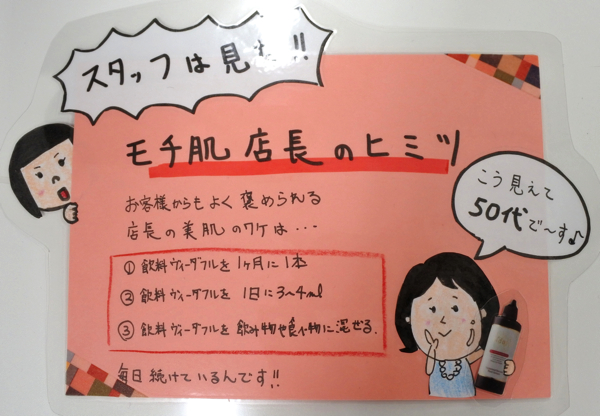 スタッフは見た!!
モチ肌店長のヒミツ
こう見えて
50代で〜す♪
お客様からもよく褒められる
店長の美肌のワケは・・・
① 飲料ヴィーダフルを 1ヶ月に1本
② 飲料ヴィーダフルを 1日に3〜4ml
③ 飲料ヴィーダフルを 飲み物や食べ物に混ぜる。
毎日続けているんです!!